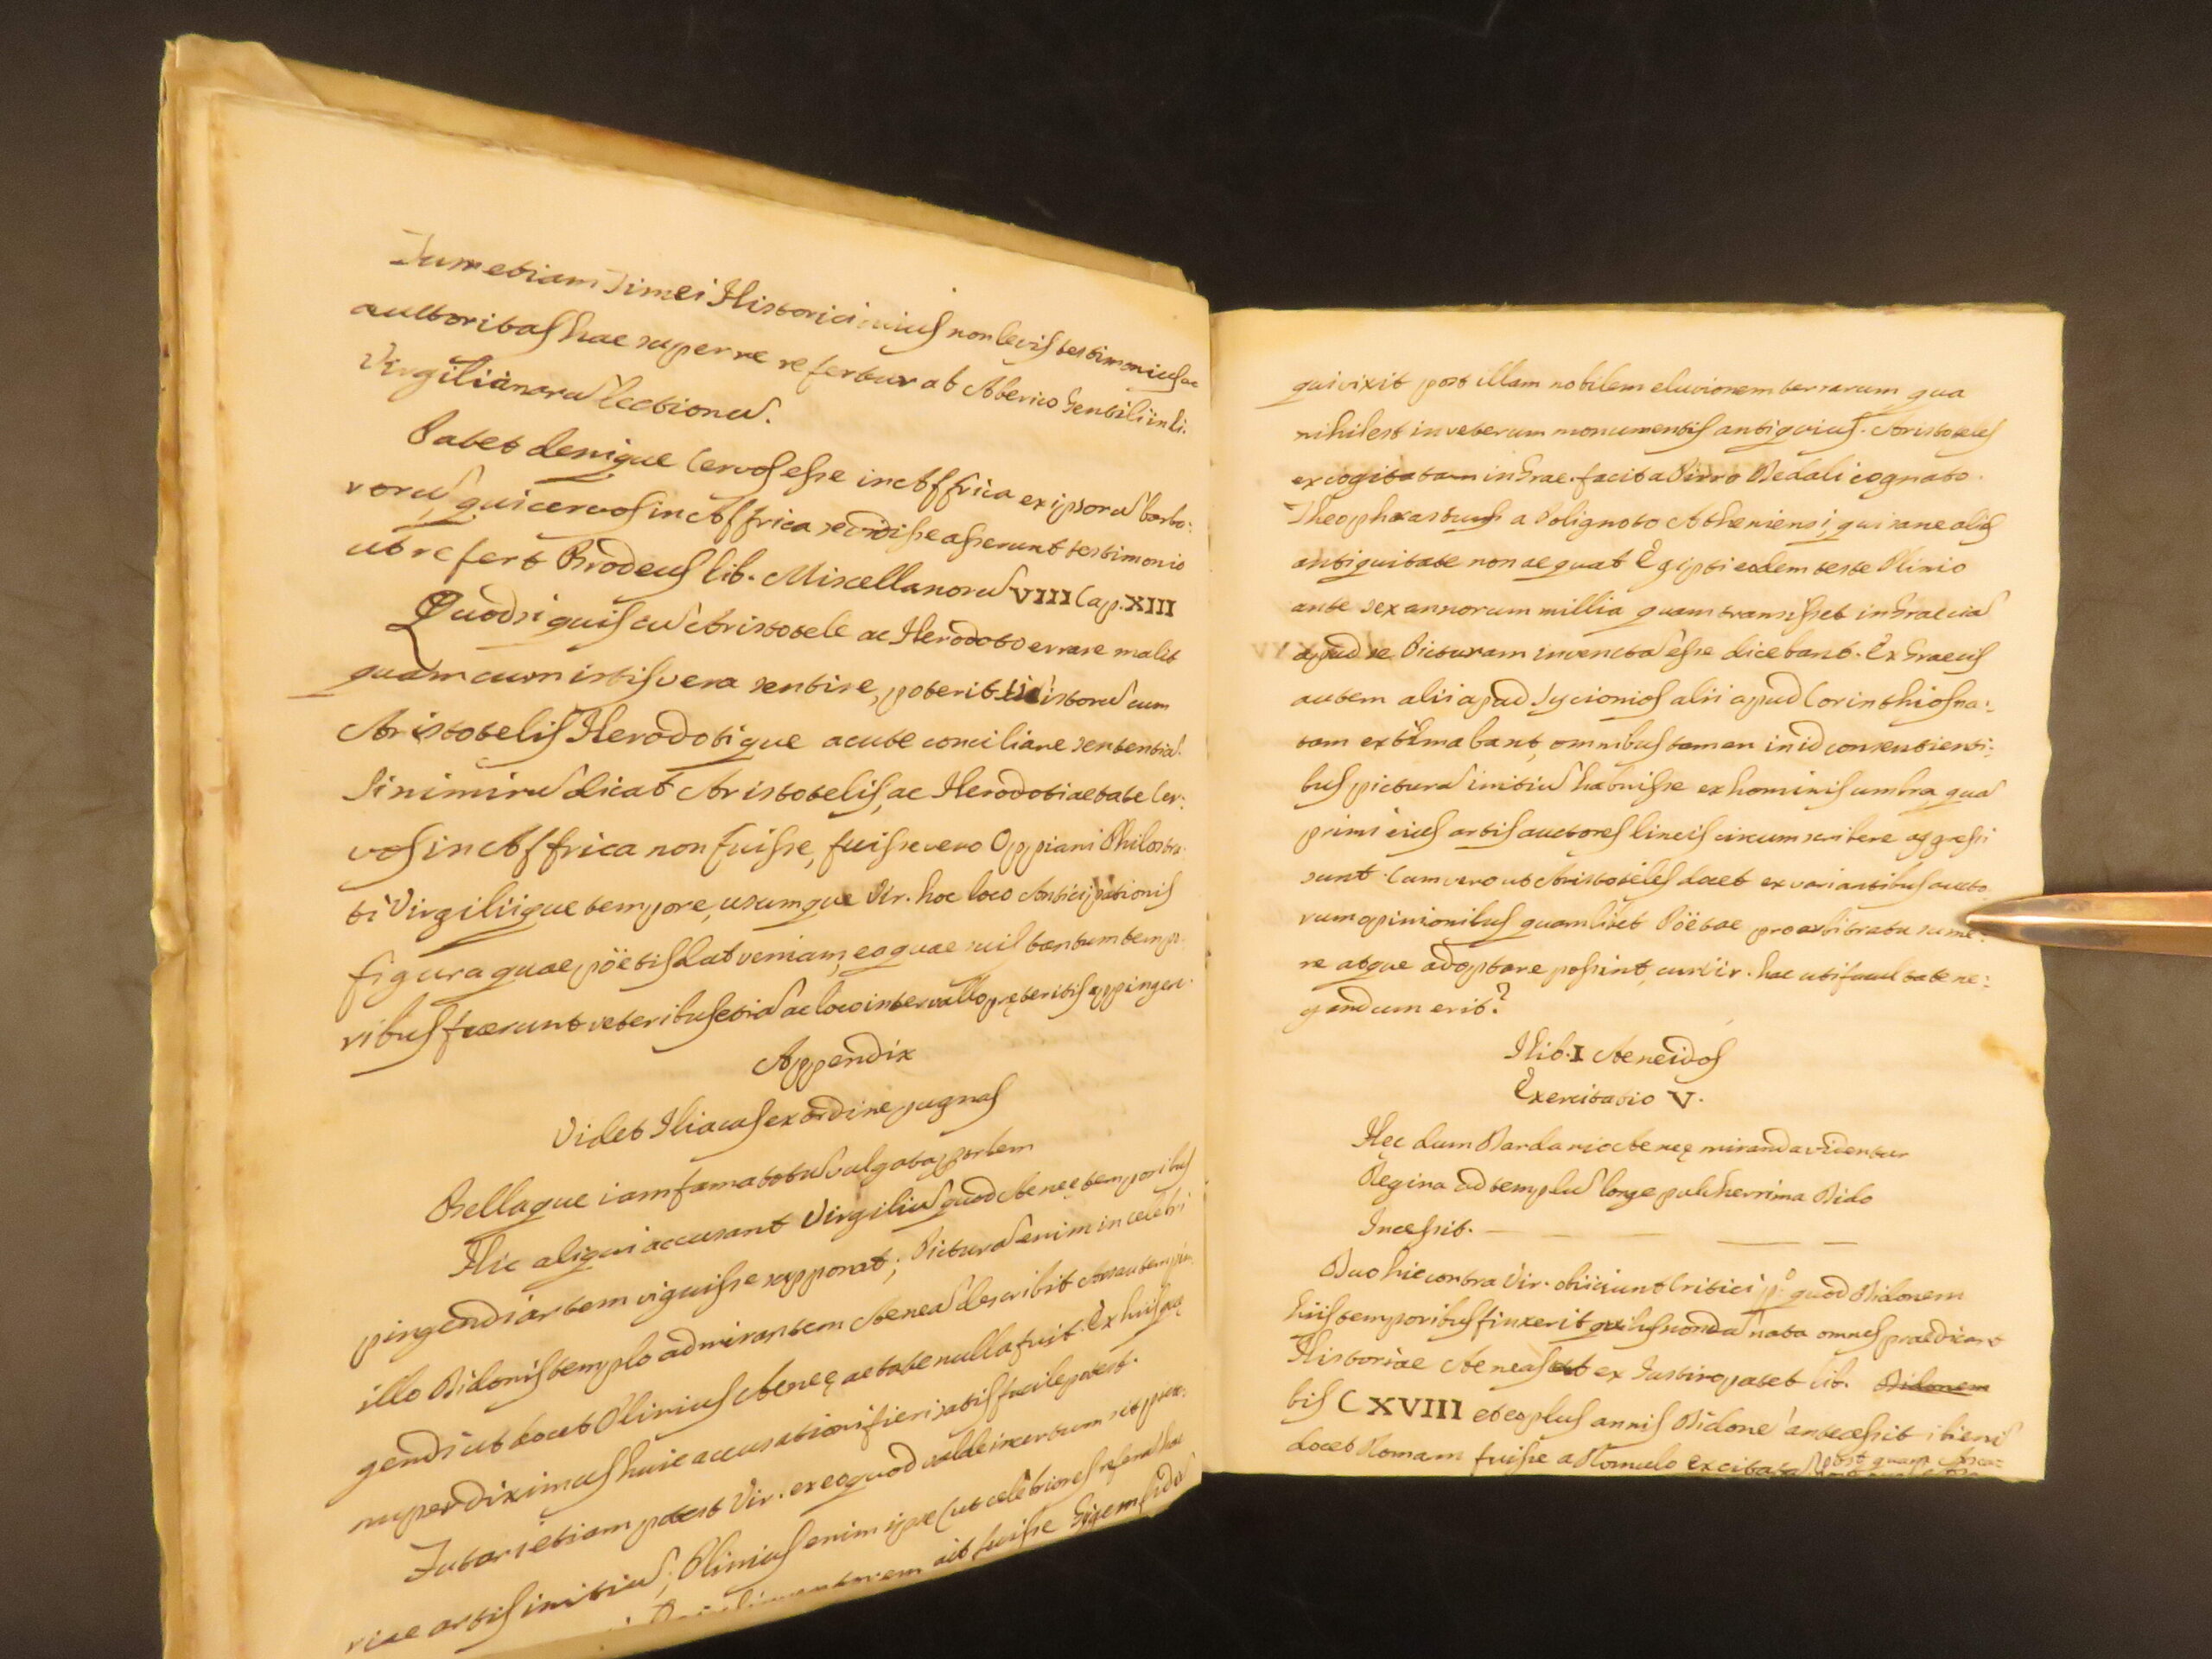 Tum etiam Timei Historici cuius non levis testimonius ac
auctoritas hac super re refertur ab Alberico Gentili in li.
Virgilianarũ lectionũ.
Patet denique Cervos esse in Affrica ex ipsorũ barba:
rorũ, qui cervos in Affrica se vidisse asserunt testimonio
ut refert Brodeus lib. Miscellanorũ VIII Cap. XIII
Quod si quis cũ Aristotele ac Herodoto errare malit
quam cum istis vera sentire, poterit istorũ cum
Aristotelis Herodotique acute conciliare sententiã.
Si nimirũ dicat Aristotelis, ac Herodoti aetate Cer:
vos in Affrica non fuisse, fuisse vero Oppiani Philostra:
ti Virgiliique tempore, usumque Vir. hoc loco Anticipationis
figura quae pöetis dat veniam, ea quae suis tantum tempo:
ribus fuerunt veteribus etiã ac loco intervallo pręteritis appingere.
Appendix
Videt Iliacas ex ordine pugnas
Bellaque iam fama totũ vulgata per orbem
Hic aliqui accusant Virgiliũ quod Aeneę temporibus
pingendi artem viguisse supponat; Picturã enim in celebri
illo Didonis templo admirantem Aeneã describit Ars autem pin:
gendi ut docet Plinius Aeneę aetate nulla fuit. Ex his quę
nuper diximus huic accusationi fieri satis facile potest.
Tutari etiam potest Vir. ex eo quod valde incertum sit pictu:
riae artis initiũ; Plinius enim ipse (ut celebriores referã)
ait fuisse Gigem
qui vixit post illam nobilem eluvionem terrarum qua
nihil est in veterum monumentis antiquius. Aristoteles
excogitatam in Grae. facit a Pirro Dedali cognato.
Theophrastus a Polignoto Atheniensi, qui sane aliis
antiquitate non aequat Egipti eodem teste Plinio
ante sex annorum millia quam transisset in Graeciã
apud se Picturam inventã esse dicebant. Ex Graecis
autem alii apud Sycionios alii apud Corinthios na:
tam extimabant, omnibus tamen in id consentienti:
bus picturã initiũ habuisse ex hominis umbra, quã
primi eius artis auctores lineis circumscribere aggressi
sunt. Cum vero ut Aristoteles docet ex variantibus aucto
rum opinionibus quamlibet Pöetae pro arbitratu sume:
re atque adoptare possint, cur Vir. hac uti facultate ne:
gandum erit?
Ilib. I Aeneidos
Exercitatio V.
Hęc dum Dardanio Aeneę miranda videntur
Regina ad templũ longe pulcherrima Dido
Incessit. — — — — —
Duo hic contra Vir. obiiciunt Critici pº. quod Didonem
hiis temporibus finxerit quibus nondũ nata omnes praedicant
Historiae Aeneas ex Iustino patet lib. Didonem
bis CXVIII et eo plus annis Didonẽ antecessit ibi enĩ
docet Romam fuisse a Romulo excitatã